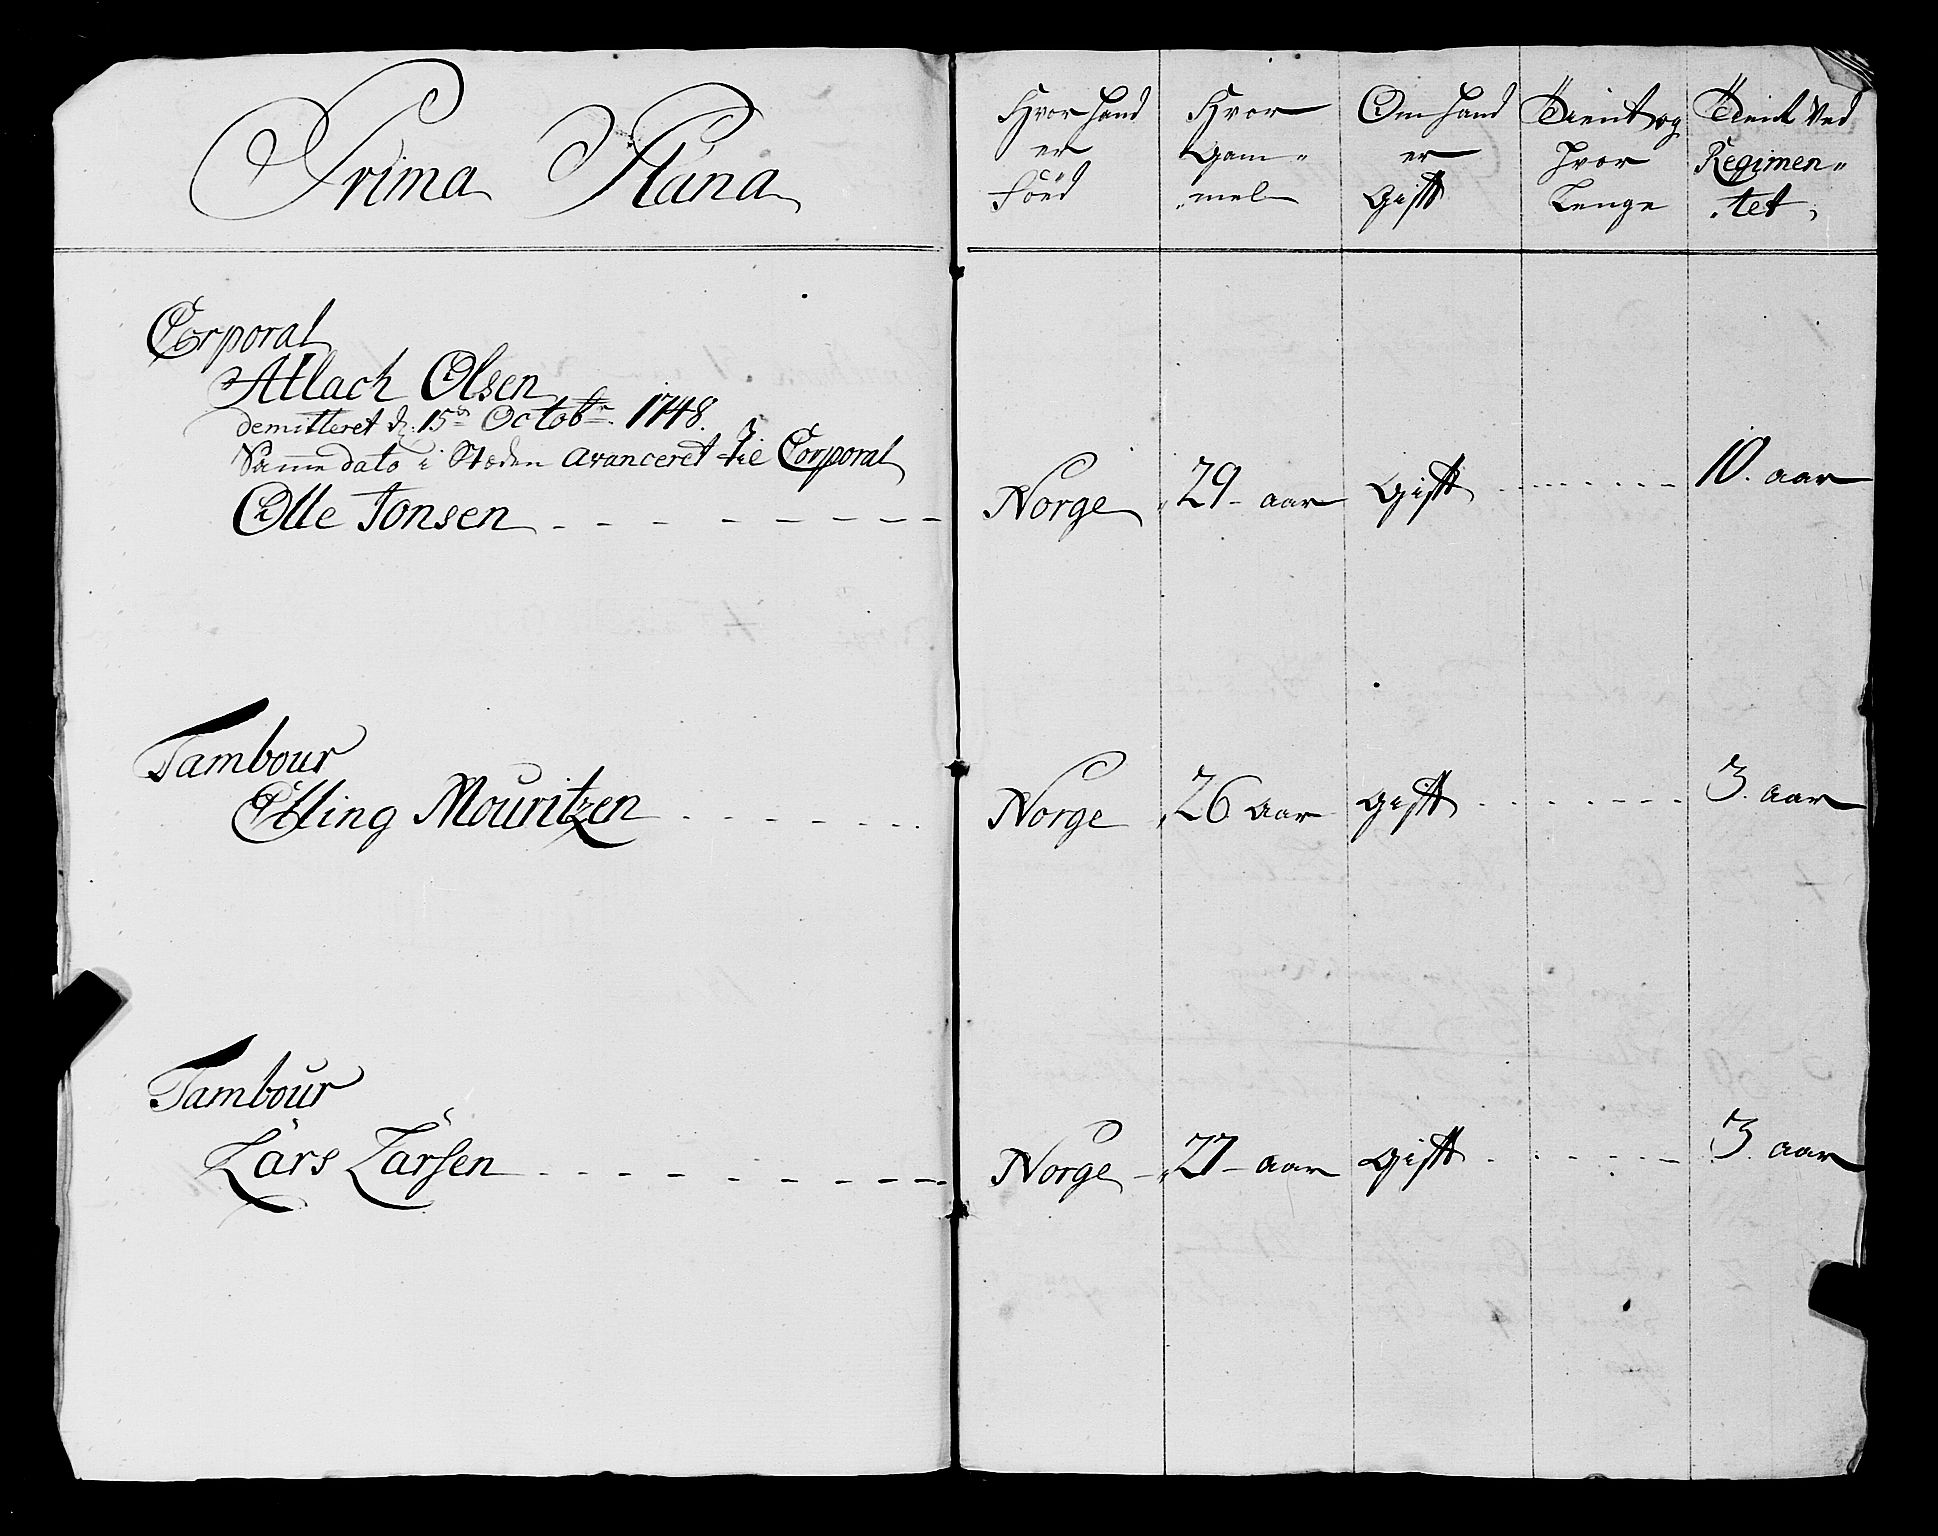 Prima Plana
Hvor hand er Föed
Hvor Gam= mel
Om hand er Gift
Tient og hvor Lenge
Tient Ved Regimen= tet
Corporal
Atlach Olsen
demitteret d. 15de Octobr. 1748.
Samme dato i Steden avanceret til Corporal
Olle Jonsen Norge 29 aar Gift 10. aar
Tambour
Elling Mouritzen Norge 26 aar gift 3. aar
Tambour
Lars Larsen Norge 27 aar gift 3. aar